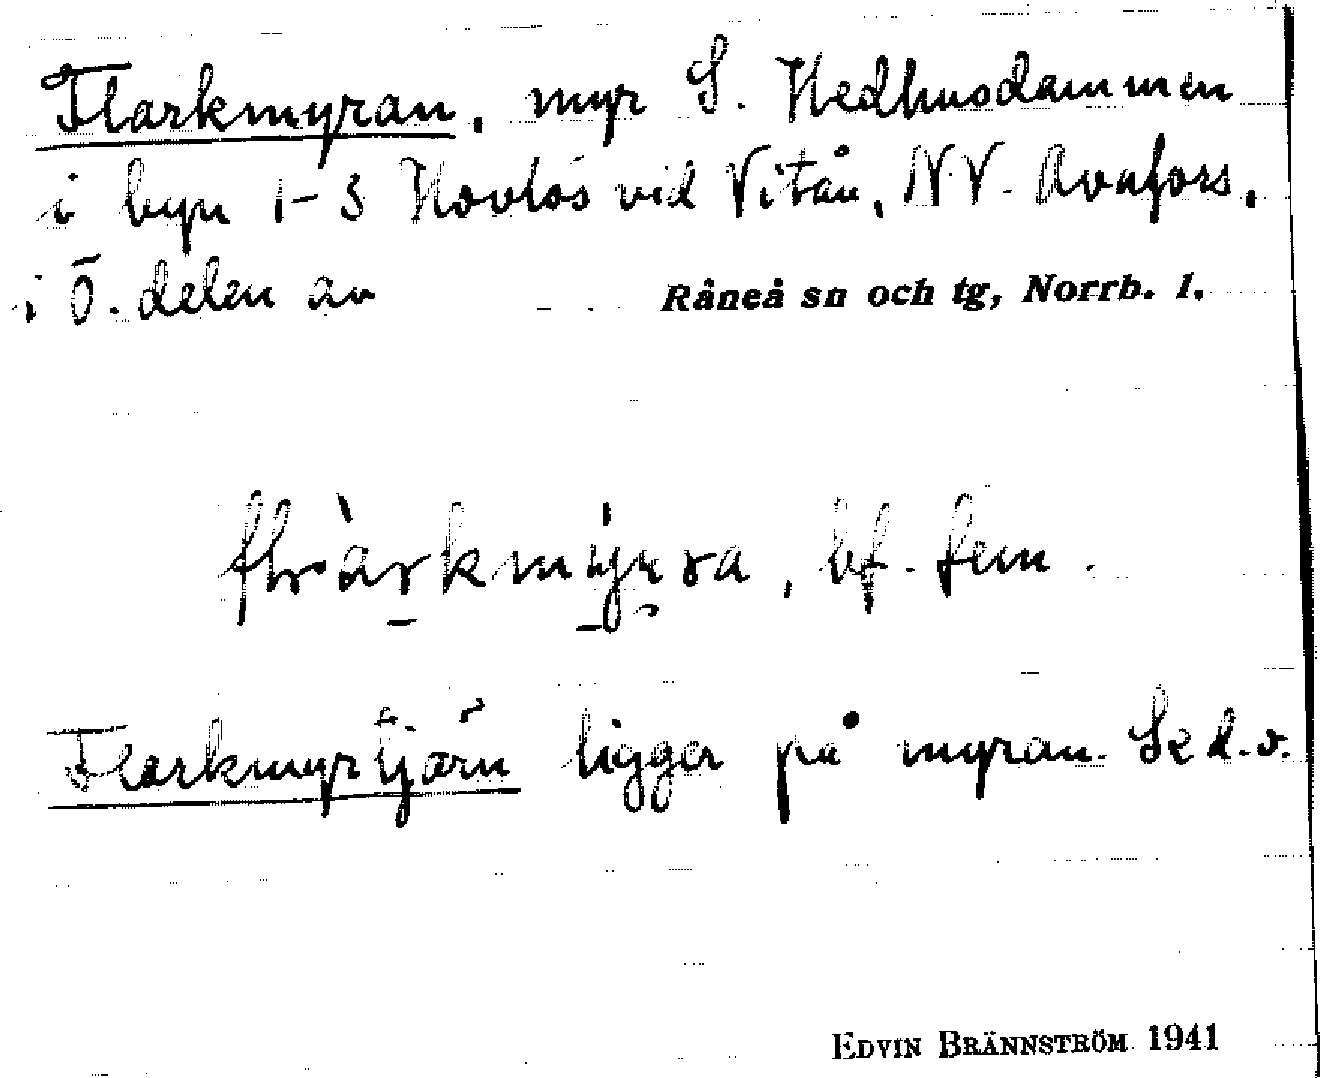 Flarkmyran, myr S. Hedhusdammen
i byn 1-3 Hovlös vid Vitån, NV. Avafors,
i Ö. delen av Råneå sn och tg, Norrb. l.
bf. fem.
Flarkmyrtjärn ligger på myran. Se d.o.
EDVIN BRÄNNSTRÖM 1941